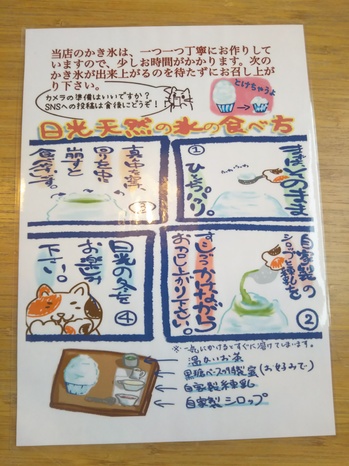 当店のかき氷は、一つ一つ丁寧にお作りして
いますので、少しお時間がかかります。次の
かき氷が出来上がるのを待たずにお召し上が
り下さい。
カメラの準備はいいですか?
SNSへの投稿は食後にどうぞ!
とけちゃうよ
日光天然の氷の食べ方
①
まずはそのまま
ひとくちパクリ。
②
自家製の
シロップと練乳を
すこしづつかけながら
お召し上がり下さい。
③
真中を空け
周りを中に
崩すと
食べ易いです。
④
日光の冬を
お楽しみ
下さい。
※一気にかけるとすぐに溶けてしまいます。
温かいお茶
(お好みで)
自家製練乳
自家製シロップ